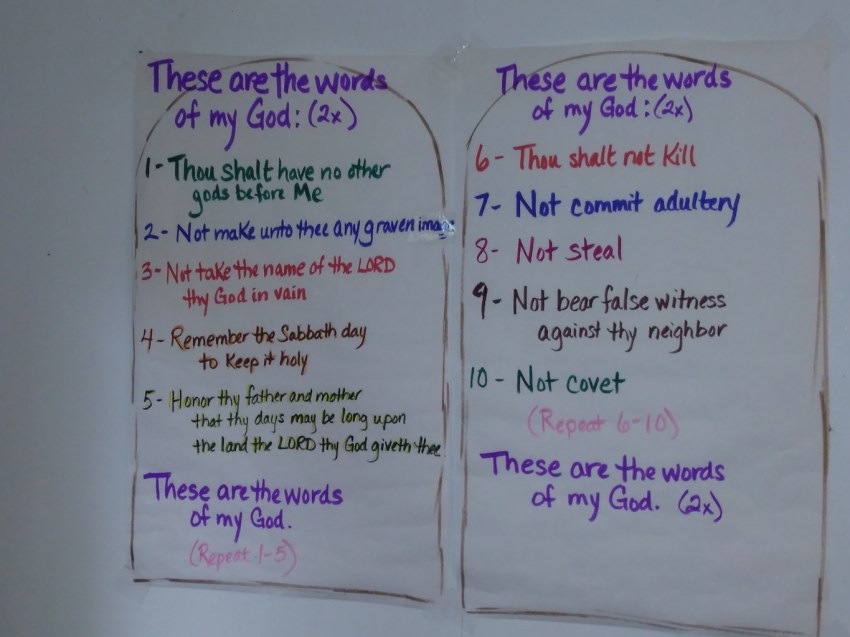 These are the words
of my God: (2x)
1- Thou shalt have no other
gods before Me
2- Not make unto thee any graven image
3- Not take the name of the LORD
thy God in vain
4- Remember the Sabbath day
to keep it holy
5- Honor thy father and mother
that thy days may be long upon
the land the LORD thy God giveth thee
These are the words
of my God.
(Repeat 1-5)
These are the words
of my God: (2x)
6- Thou shalt not kill
7- Not commit adultery
8- Not steal
9- Not bear false witness
against thy neighbor
10- Not covet
(Repeat 6-10)
These are the words
of my God. (2x)